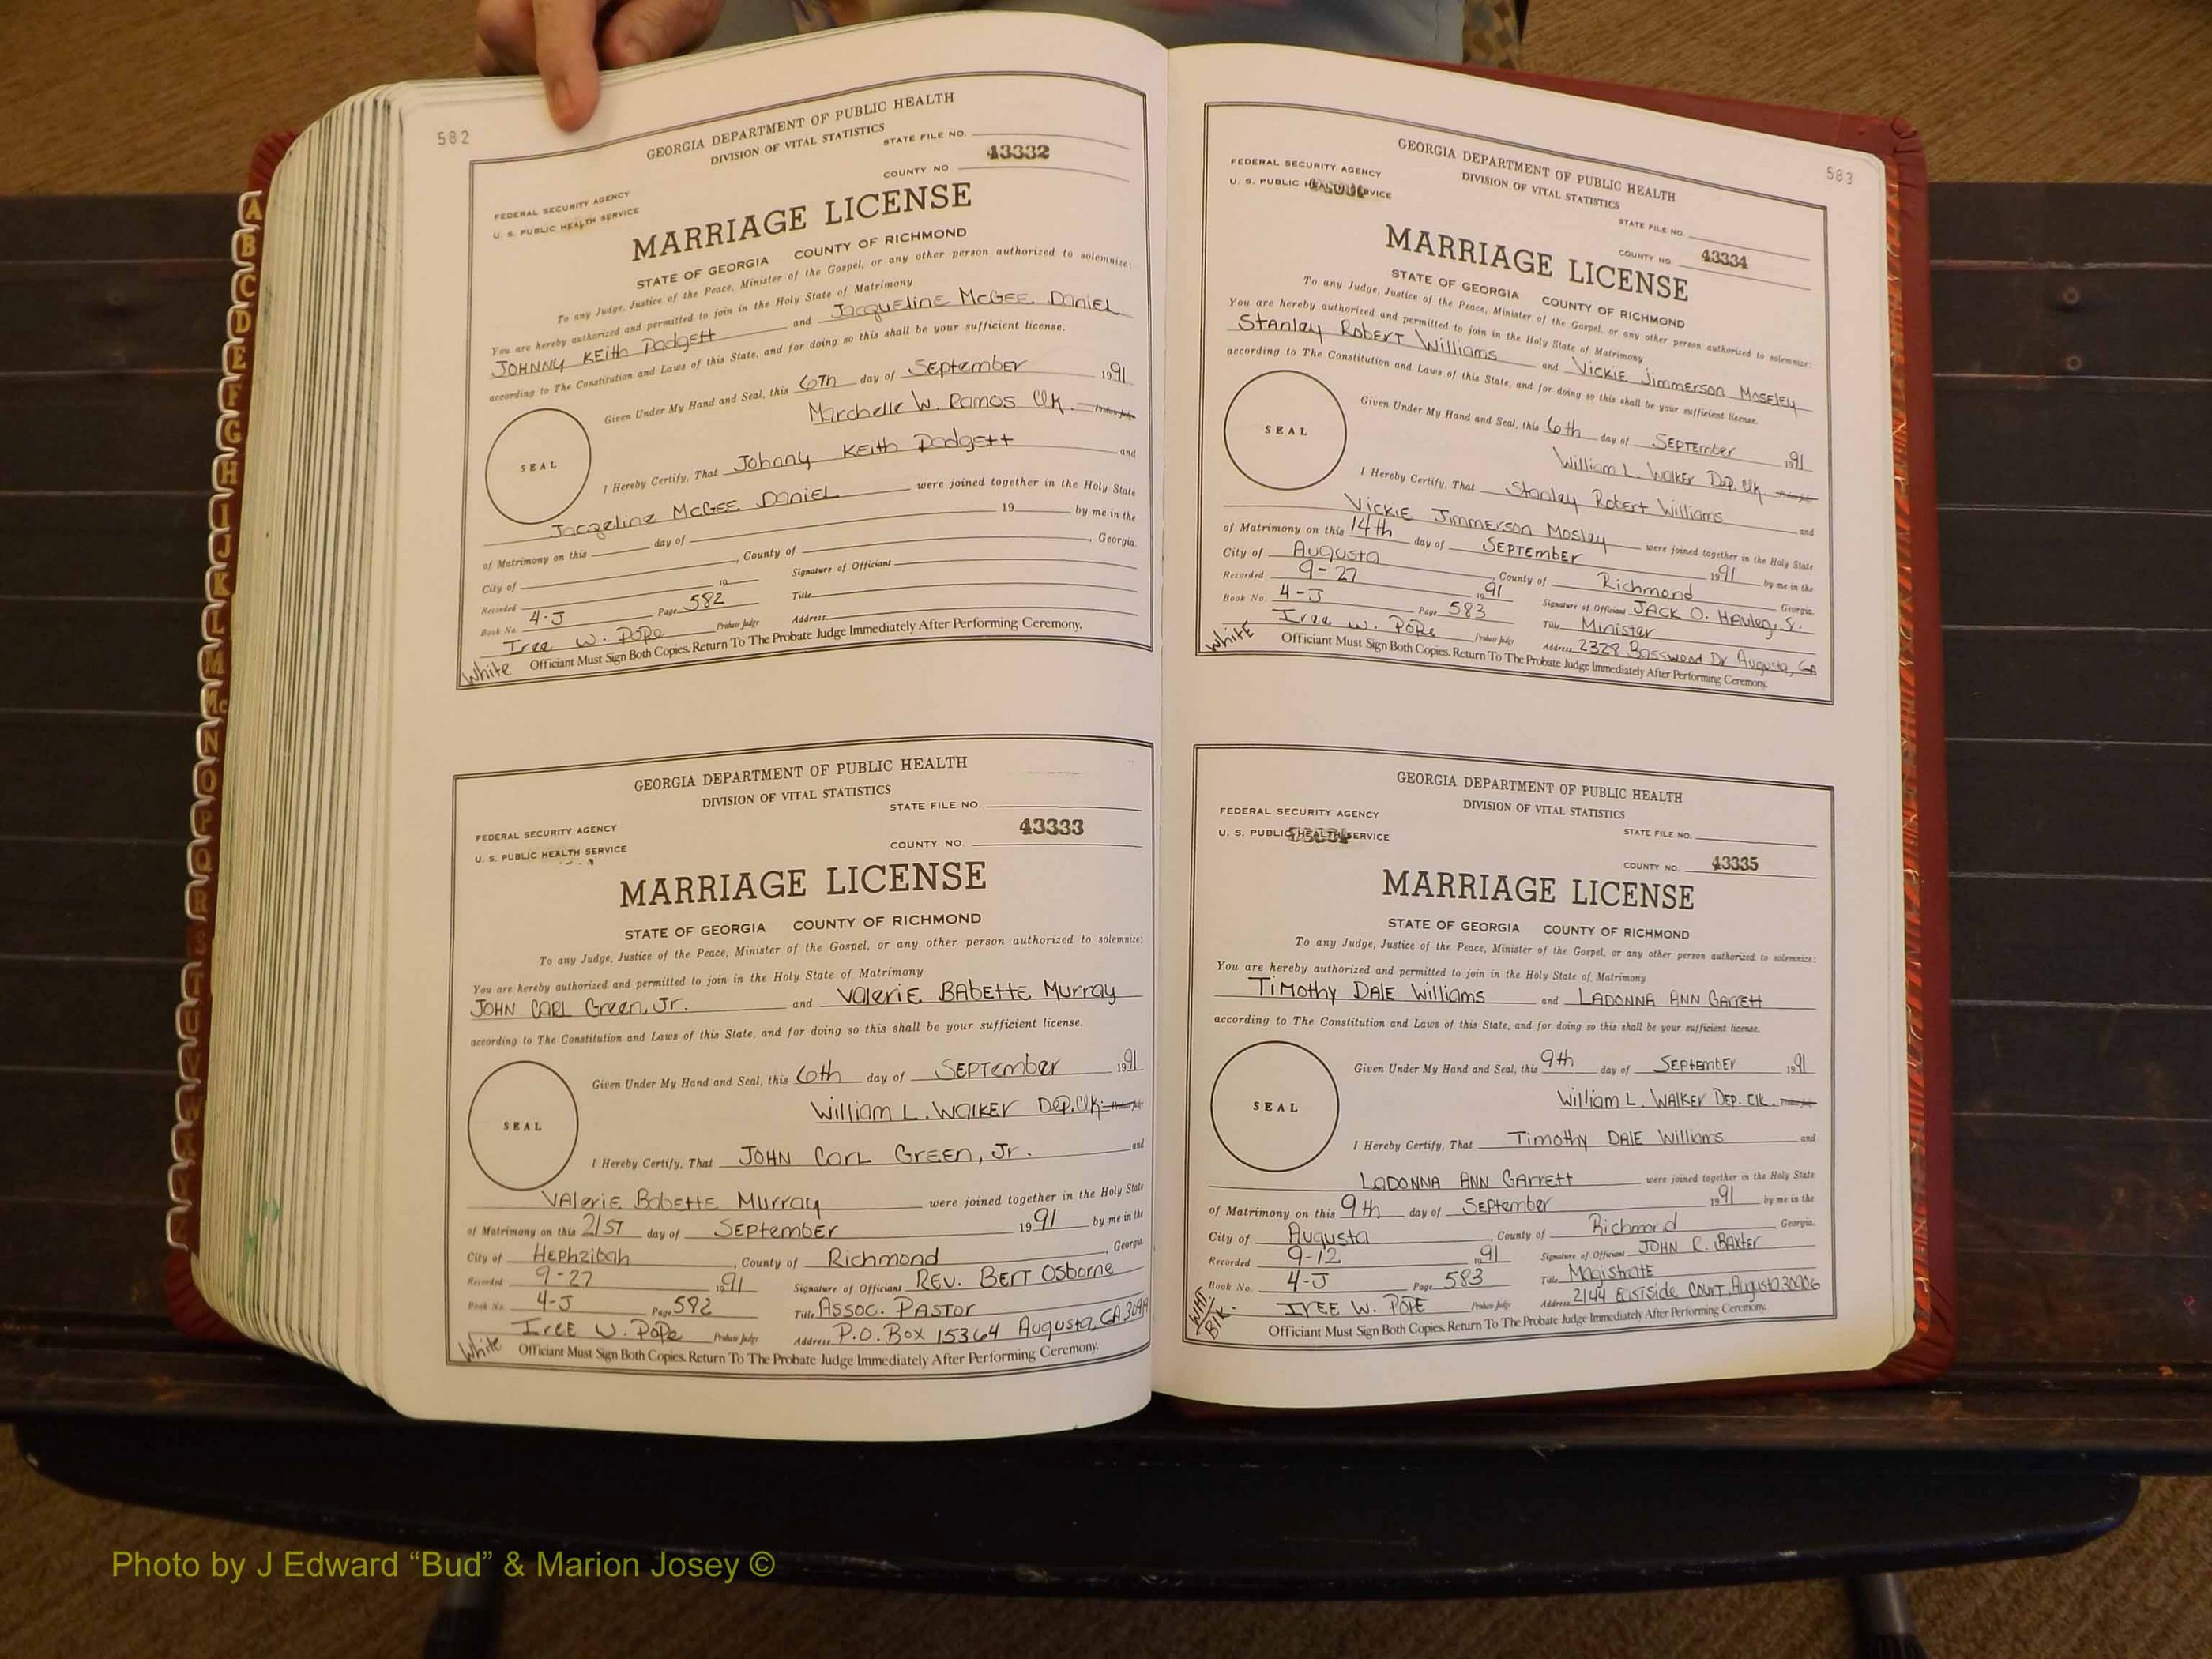 582
GEORGIA DEPARTMENT OF PUBLIC HEALTH
DIVISION OF VITAL STATISTICS
STATE FILE NO.
43332
COUNTY NO.
FEDERAL SECURITY AGENCY
U. S. PUBLIC HEALTH SERVICE
MARRIAGE LICENSE
STATE OF GEORGIA COUNTY OF RICHMOND
To any Judge, Justice of the Peace, Minister of the Gospel, or any other person authorized to solemnize:
You are hereby authorized and permitted to join in the Holy State of Matrimony
JOHNNY KEith Padgett and Jacqueline McGEE DaniEl
according to The Constitution and Laws of this State, and for doing so this shall be your sufficient license.
Given Under My Hand and Seal, this 6Th day of September 1991
Marchelle W. Ramos Clk. Probate Judge
SEAL
I Hereby Certify, That Johnny KEith Padgett and
Jacqeline McGEE DaniEL were joined together in the Holy State
of Matrimony on this day of 19 by me in the
City of , County of , Georgia.
Recorded 19 Signature of Officiant
Book No. 4-J Page 582 Title
IrEE W. POPE Probate Judge Address
White Officiant Must Sign Both Copies. Return To The Probate Judge Immediately After Performing Ceremony.
GEORGIA DEPARTMENT OF PUBLIC HEALTH
DIVISION OF VITAL STATISTICS
STATE FILE NO.
FEDERAL SECURITY AGENCY
43333
U. S. PUBLIC HEALTH SERVICE
COUNTY NO.
MARRIAGE LICENSE
STATE OF GEORGIA COUNTY OF RICHMOND
To any Judge, Justice of the Peace, Minister of the Gospel, or any other person authorized to solemnize:
You are hereby authorized and permitted to join in the Holy State of Matrimony
JOHN CARL GrEEn, Jr. and ValEriE BAbETTE Murray
according to The Constitution and Laws of this State, and for doing so this shall be your sufficient license.
Given Under My Hand and Seal, this 6th day of SEPTEmber 1991
William L. WalKER DEp. Clk. Probate Judge
SEAL
I Hereby Certify, That JOHN CarL GrEEN, Jr. and
VAlEriE BabETTE Murray were joined together in the Holy State
of Matrimony on this 21ST day of SEPTEmbER 1991 by me in the
City of HEphzibah , County of Richmond , Georgia
Recorded 9-27 1991 Signature of Officiant REV. BErT Osborne
Book No. 4-J Page 582 Title Assoc. PASTOr
IrEE W. POPE Probate Judge Address P.O. Box 15364 Augusta, GA
White Officiant Must Sign Both Copies. Return To The Probate Judge Immediately After Performing Ceremony.
583
GEORGIA DEPARTMENT OF PUBLIC HEALTH
DIVISION OF VITAL STATISTICS
FEDERAL SECURITY AGENCY
U. S. PUBLIC HEALTH SERVICE
STATE FILE NO.
COUNTY NO. 43334
MARRIAGE LICENSE
STATE OF GEORGIA COUNTY OF RICHMOND
To any Judge, Justice of the Peace, Minister of the Gospel, or any other person authorized to solemnize:
You are hereby authorized and permitted to join in the Holy State of Matrimony
STanley RobErT Williams and VickiE Jimmerson MosElEy
according to The Constitution and Laws of this State, and for doing so this shall be your sufficient license.
Given Under My Hand and Seal, this 6th day of SEPTEmber 1991
William L. WalkER DEp. Clk. Probate Judge
SEAL
I Hereby Certify, That STanley RobErt Williams and
VickiE Jimmerson Mosley were joined together in the Holy State
of Matrimony on this 14th day of SEPTEmbEr 1991 by me in the
City of Augusta , County of Richmond Georgia.
Recorded 9-27 1991 Signature of Officiant JACK O.
Book No. 4-J Page 583 Title Minister
IrEE W. POPE Probate Judge Address 2328 Basswood Dr Augusta, GA
White Officiant Must Sign Both Copies. Return To The Probate Judge Immediately After Performing Ceremony.
GEORGIA DEPARTMENT OF PUBLIC HEALTH
DIVISION OF VITAL STATISTICS
FEDERAL SECURITY AGENCY
U. S. PUBLIC HEALTH SERVICE
STATE FILE NO.
COUNTY NO. 43335
MARRIAGE LICENSE
STATE OF GEORGIA COUNTY OF RICHMOND
To any Judge, Justice of the Peace, Minister of the Gospel, or any other person authorized to solemnize:
You are hereby authorized and permitted to join in the Holy State of Matrimony
TiMothy DALE Williams and LADONNA ANN GArrEtt
according to The Constitution and Laws of this State, and for doing so this shall be your sufficient license.
Given Under My Hand and Seal, this 9th day of SEPtEmbEr 1991
William L. WALKER DEP. Clk. Probate Judge
SEAL
I Hereby Certify, That Timothy DALE Williams and
LaDONNA ANN GArrEtt were joined together in the Holy State
of Matrimony on this 9th day of SEptember 1991 by me in the
City of Augusta , County of Richmond , Georgia.
Recorded 9-12 1991 Signature of Officiant JOHN R. BAxter
Book No. 4-J Page 583 Title MagistratE
IrEE W. POPE Probate Judge Address 2144 EastSide Court, Augusta 30906
WHT/BlK- Officiant Must Sign Both Copies. Return To The Probate Judge Immediately After Performing Ceremony.
A
B
C
D
E
F
G
H
I
J
K
L
M
Mc
N
O
P
Q
R
S
T
U
V
W
Photo by J Edward “Bud” & Marion Josey ©